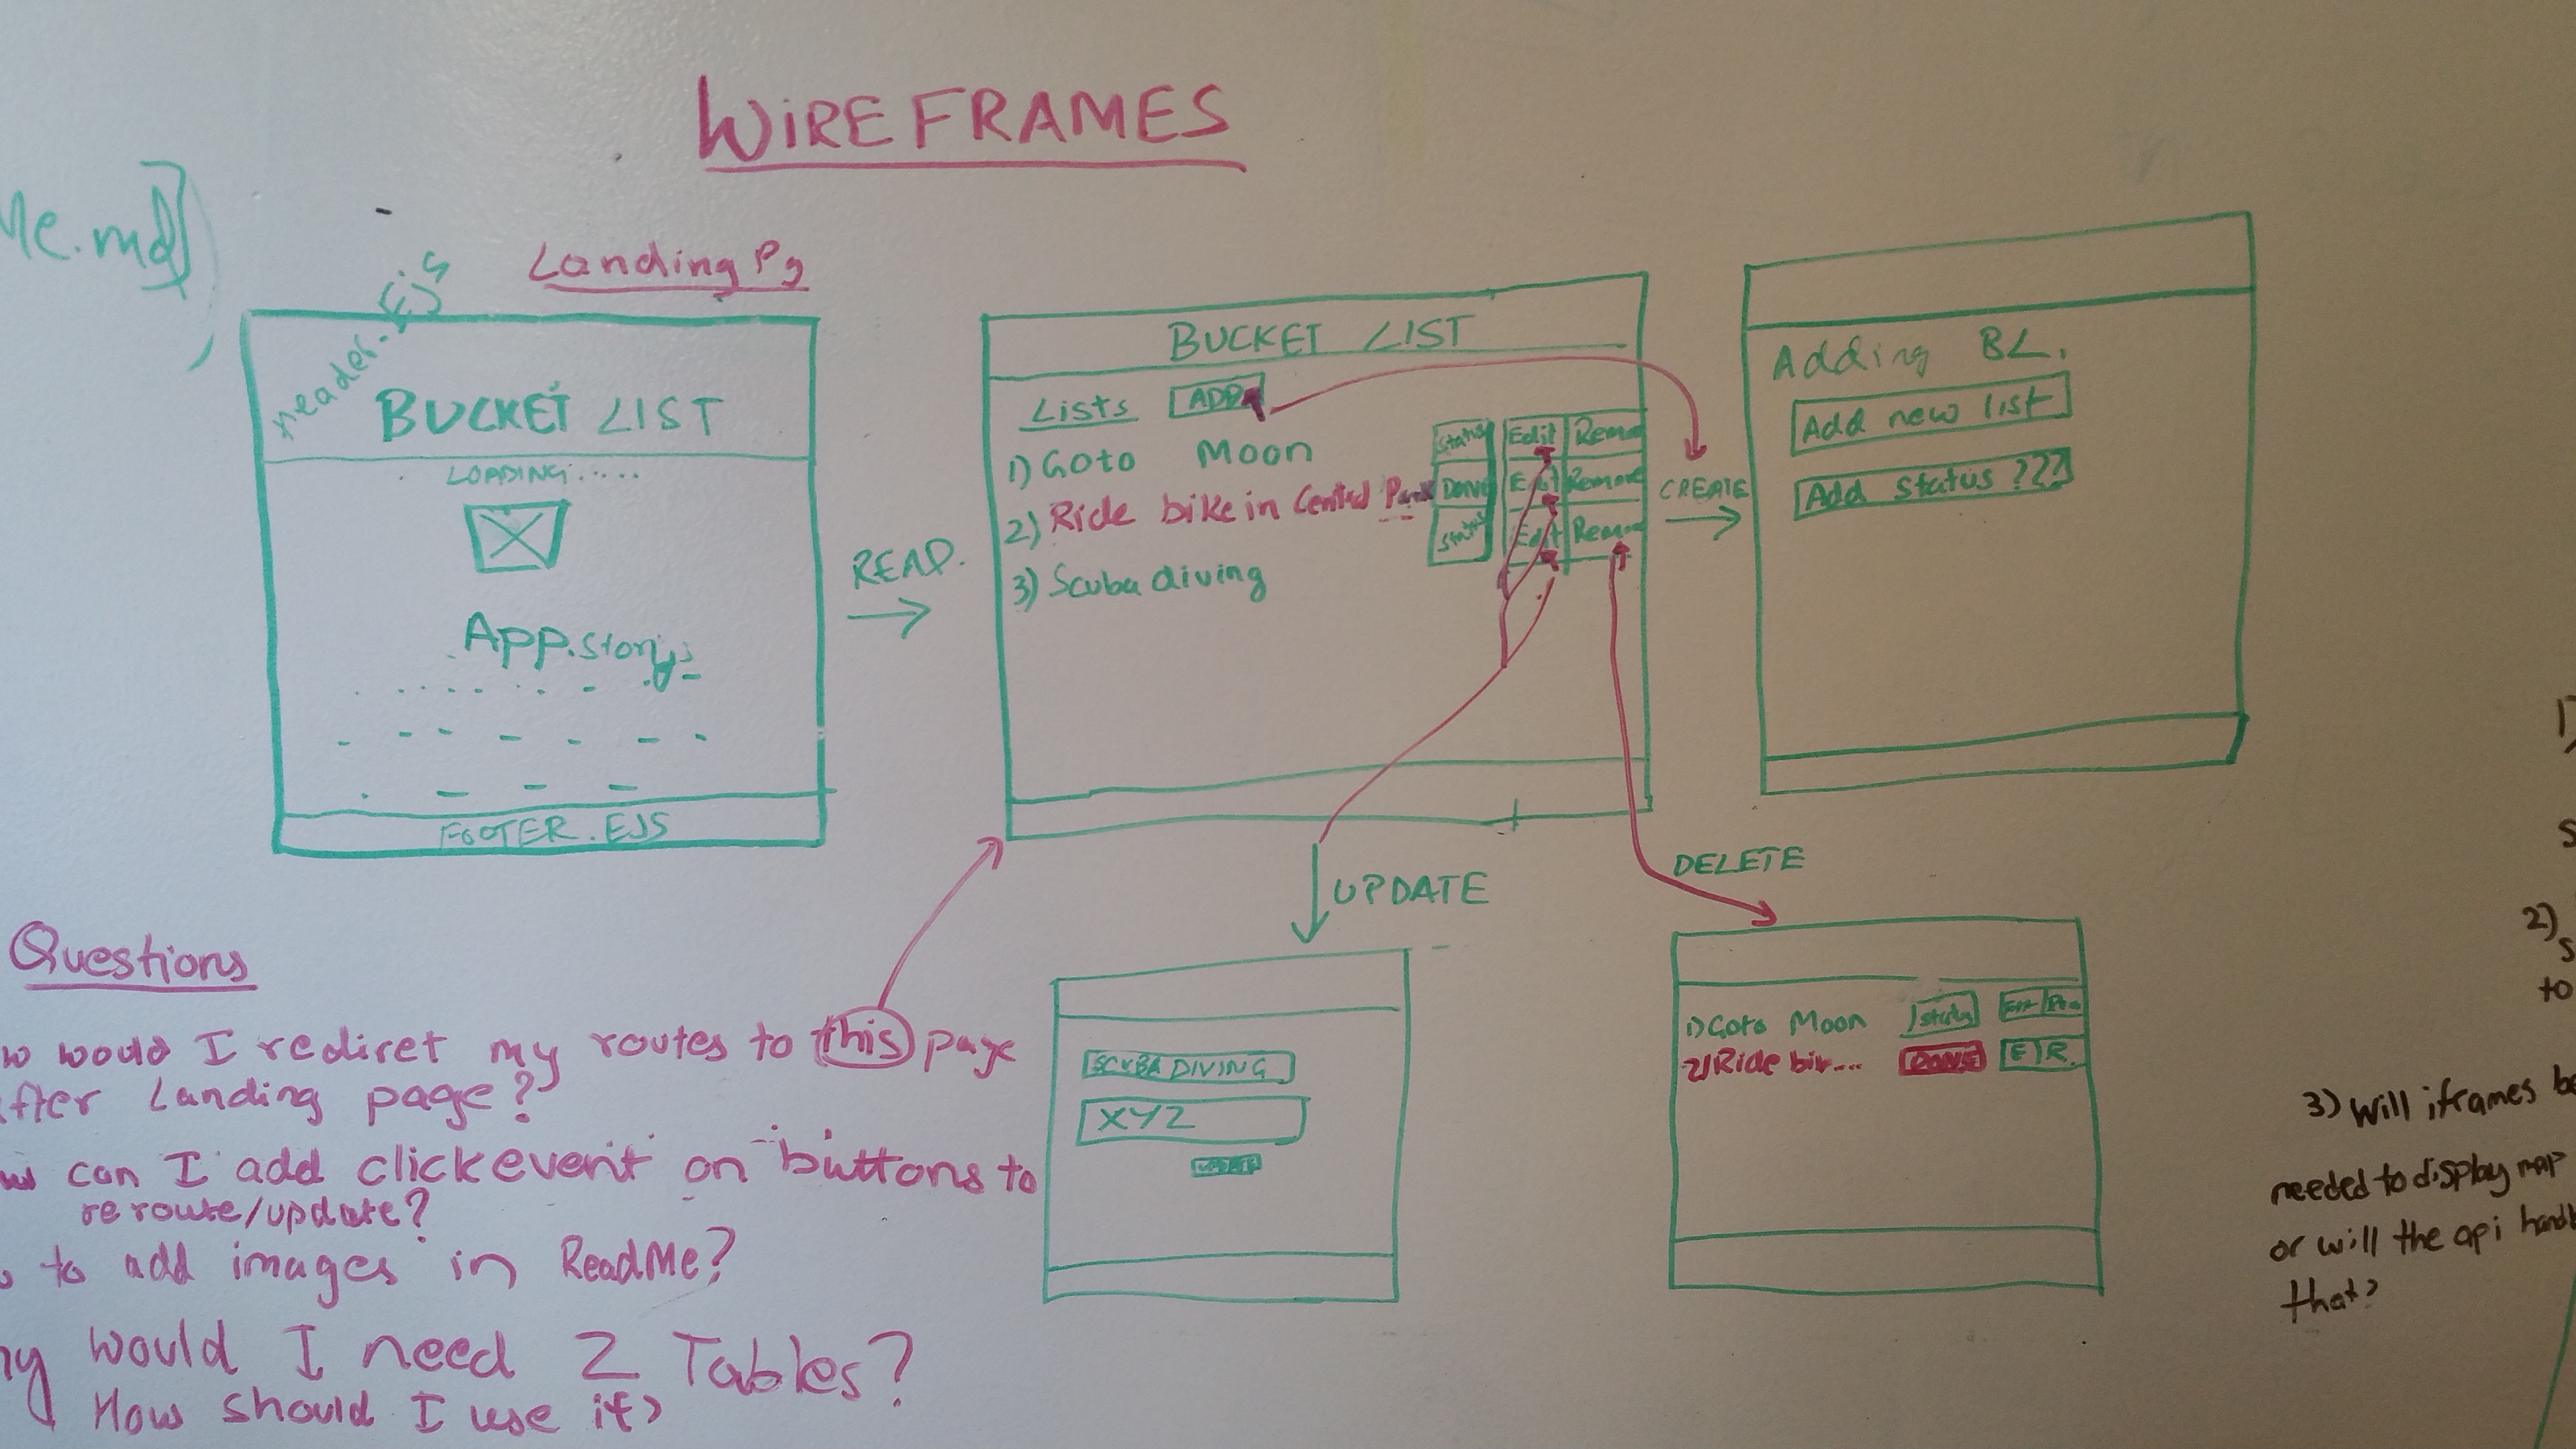 WIREFRAMES
Me.md]
Landing Pg
header.Ejs
BUCKET LIST
LOADING.....
App.story
FOOTER.EJS
READ.
BUCKET LIST
Lists ADD
1) Goto Moon Status Edit Remo
2) Ride bike in Central Park Done Edit Remove
3) Scuba diving Status Edit Remo
CREATE
Adding BL.
Add new list
Add status ???
UPDATE
DELETE
SCUBA DIVING
XYZ
UPDATE
1) Goto Moon Status
2) Ride bik... DONE E R.
Questions
ow would I rediret my routes to this page
fter Landing page?
can I add click event on buttons to
reroute/update?
to add images in ReadMe?
hy would I need 2 Tables?
How should I use it?
1)
S
2)
S
to
3) Will iframes be
needed to display map
or will the api handl
that?